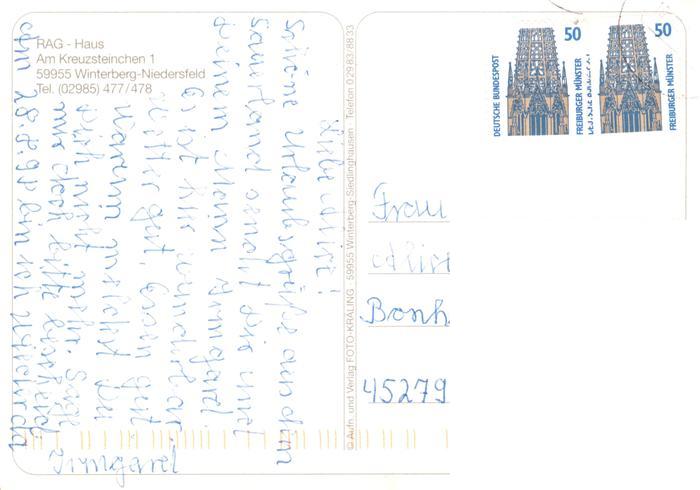 RAG - Haus
Am Kreuzsteinchen 1
59955 Winterberg-Niedersfeld
Tel. (02985) 477/478
Schöne Urlaubsgrüße aus dem
Sauerland sendet Dir und
Deinem Mann Irmgard.
Es ist hier wunderbar
Wetter gut, Essen gut
Warum meldest Du
Dich nicht mehr. Sage
mir doch bitte bescheid
Am 28.8.98 bin ich
Irmgard
© Aufn. und Verlag FOTO-KRALING · 59955 Winterberg-Siedlinghausen · Telefon 02983/8833
DEUTSCHE BUNDESPOST
50
FREIBURGER MÜNSTER
50
FREIBURGER MÜNSTER
Frau
Bonh
45279